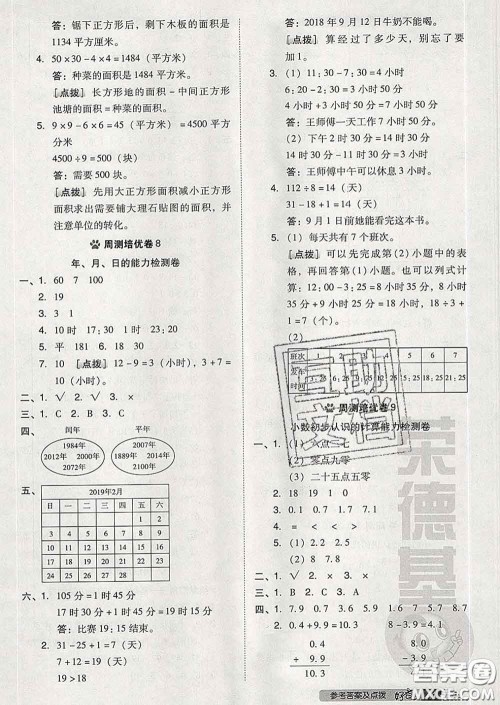 答：锯下正方形后，剩下木板的面积是
1134 平方厘米。
4. 50×30－4×4＝1484（平方米）
答：种菜的面积是 1484 平方米。
[点拨] 长方形地的面积－中间正方形
池塘的面积＝种菜的面积。
5. 9×9－6×6＝45（平方米）＝4500 平方
分米
4500÷9＝500（块）
答：需要 500 块。
[点拨] 先用大正方形面积减小正方形
面积求出需要铺大理石贴图的面积，并
注意单位的转化。
周测培优卷 8
年、月、日的能力检测卷
一、1. 60 7 100
2. 19
3. 3 1
4. 10 时 17：30 1 时 23：20
5. 平 181 6. 30
7. 10 [点拨] 12－0＝12（小时），12－2＝
10（小时）。
二、1. × 2. √ 3. × 4. √ 5. ×
三、1. B 2. C 3. A 4. B 5. C
四、
闰年 平年
1984年 2007年
2012年 2000年 1889年 2014年
2072年 2100年
五、
2019年2月
日 一 二 三 四 五 六
1 2
3 4 5 6 7 8 9
10 11 12 13 14 15 16
17 18 19 20 21 22 23
24 25 26 27 28
六、1. 105 分＝1 时 45 分
17 时 30 分＋1 时 45 分＝19 时 15 分
答：比赛 19：15 结束。
2. 31－25＋1＝7（天）
7＋12＝19（天）
19＞18
答：2018 年 9 月 12 日牛奶不能喝。
[点拨] 算经过了多少天，别忘了要
加 1。
3. （1）11：30－7：30＝4 小时
6：20－2：50＝3 小时 30 分
4 小时＋3 小时 30 分＝7 小时 30 分
答：王师傅一天工作 7 小时 30 分。
（2）下午 2 时 30 分＝14 时 30 分
14 时 30 分－11 时 30 分＝3 小时
答：王师傅中午可以休息 3 小时。
4. 112÷8＝14（天）
31－18＋1＝14（天）
答：9 月 1 日前她能看完这本书。
5. （1）每天共有 7 个班次。
[点拨] 先根据第（2）小题中的表格，
再回答第（1）小题。也可以列式计
算：12：00－3：25＋9 小时 25 分＝
18（小时），18÷3＋
1＝7（个）
（2）
班次 1 2 3 4 5 6 7
发车时间 3：25 6：25
周测培优卷 9
小数初步认识的计算能力检测卷
一、1. （1）六点二七
（2）零点九
（3）二十五点五零
2. 18 19 1 0
3. 0.8 1.2 0.7
4. < > < >
5. （1）2.2 2.5
（2）9.7 9.4
二、1. √ 2. × 3. ×
三、1. A 2. B 3. C
四、1. 7.9 0.9 3.5 0.6 1.7 8.7
2. 0.4＋9.9＝10.3 8－3.9＝4.1
0.4 8.0
＋ 9.9 － 3.9
10.3
参考答案及点拨
荣德基
互助文档
答案圈
MXQE.COM